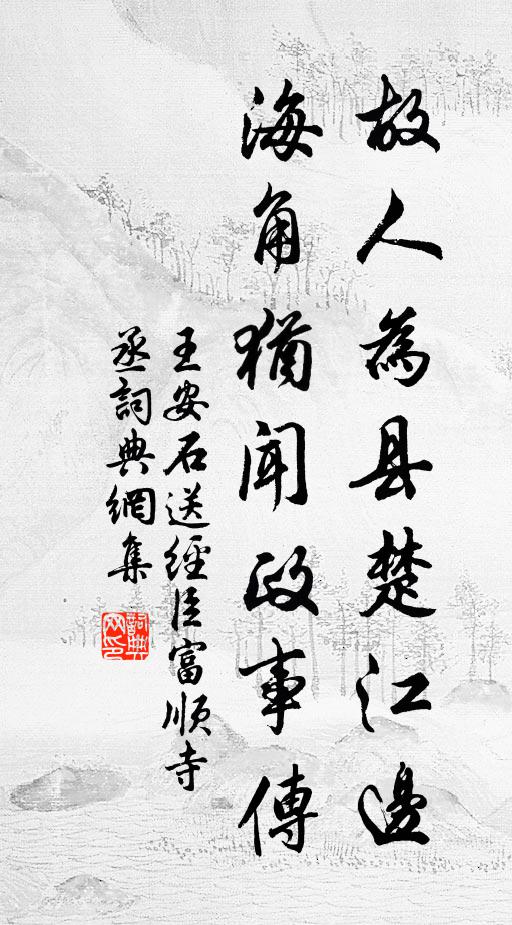 故人為县楚江邊
海角猶聞政事傳
王安石送經臣富順寺
丞詞典網集
詞典網印